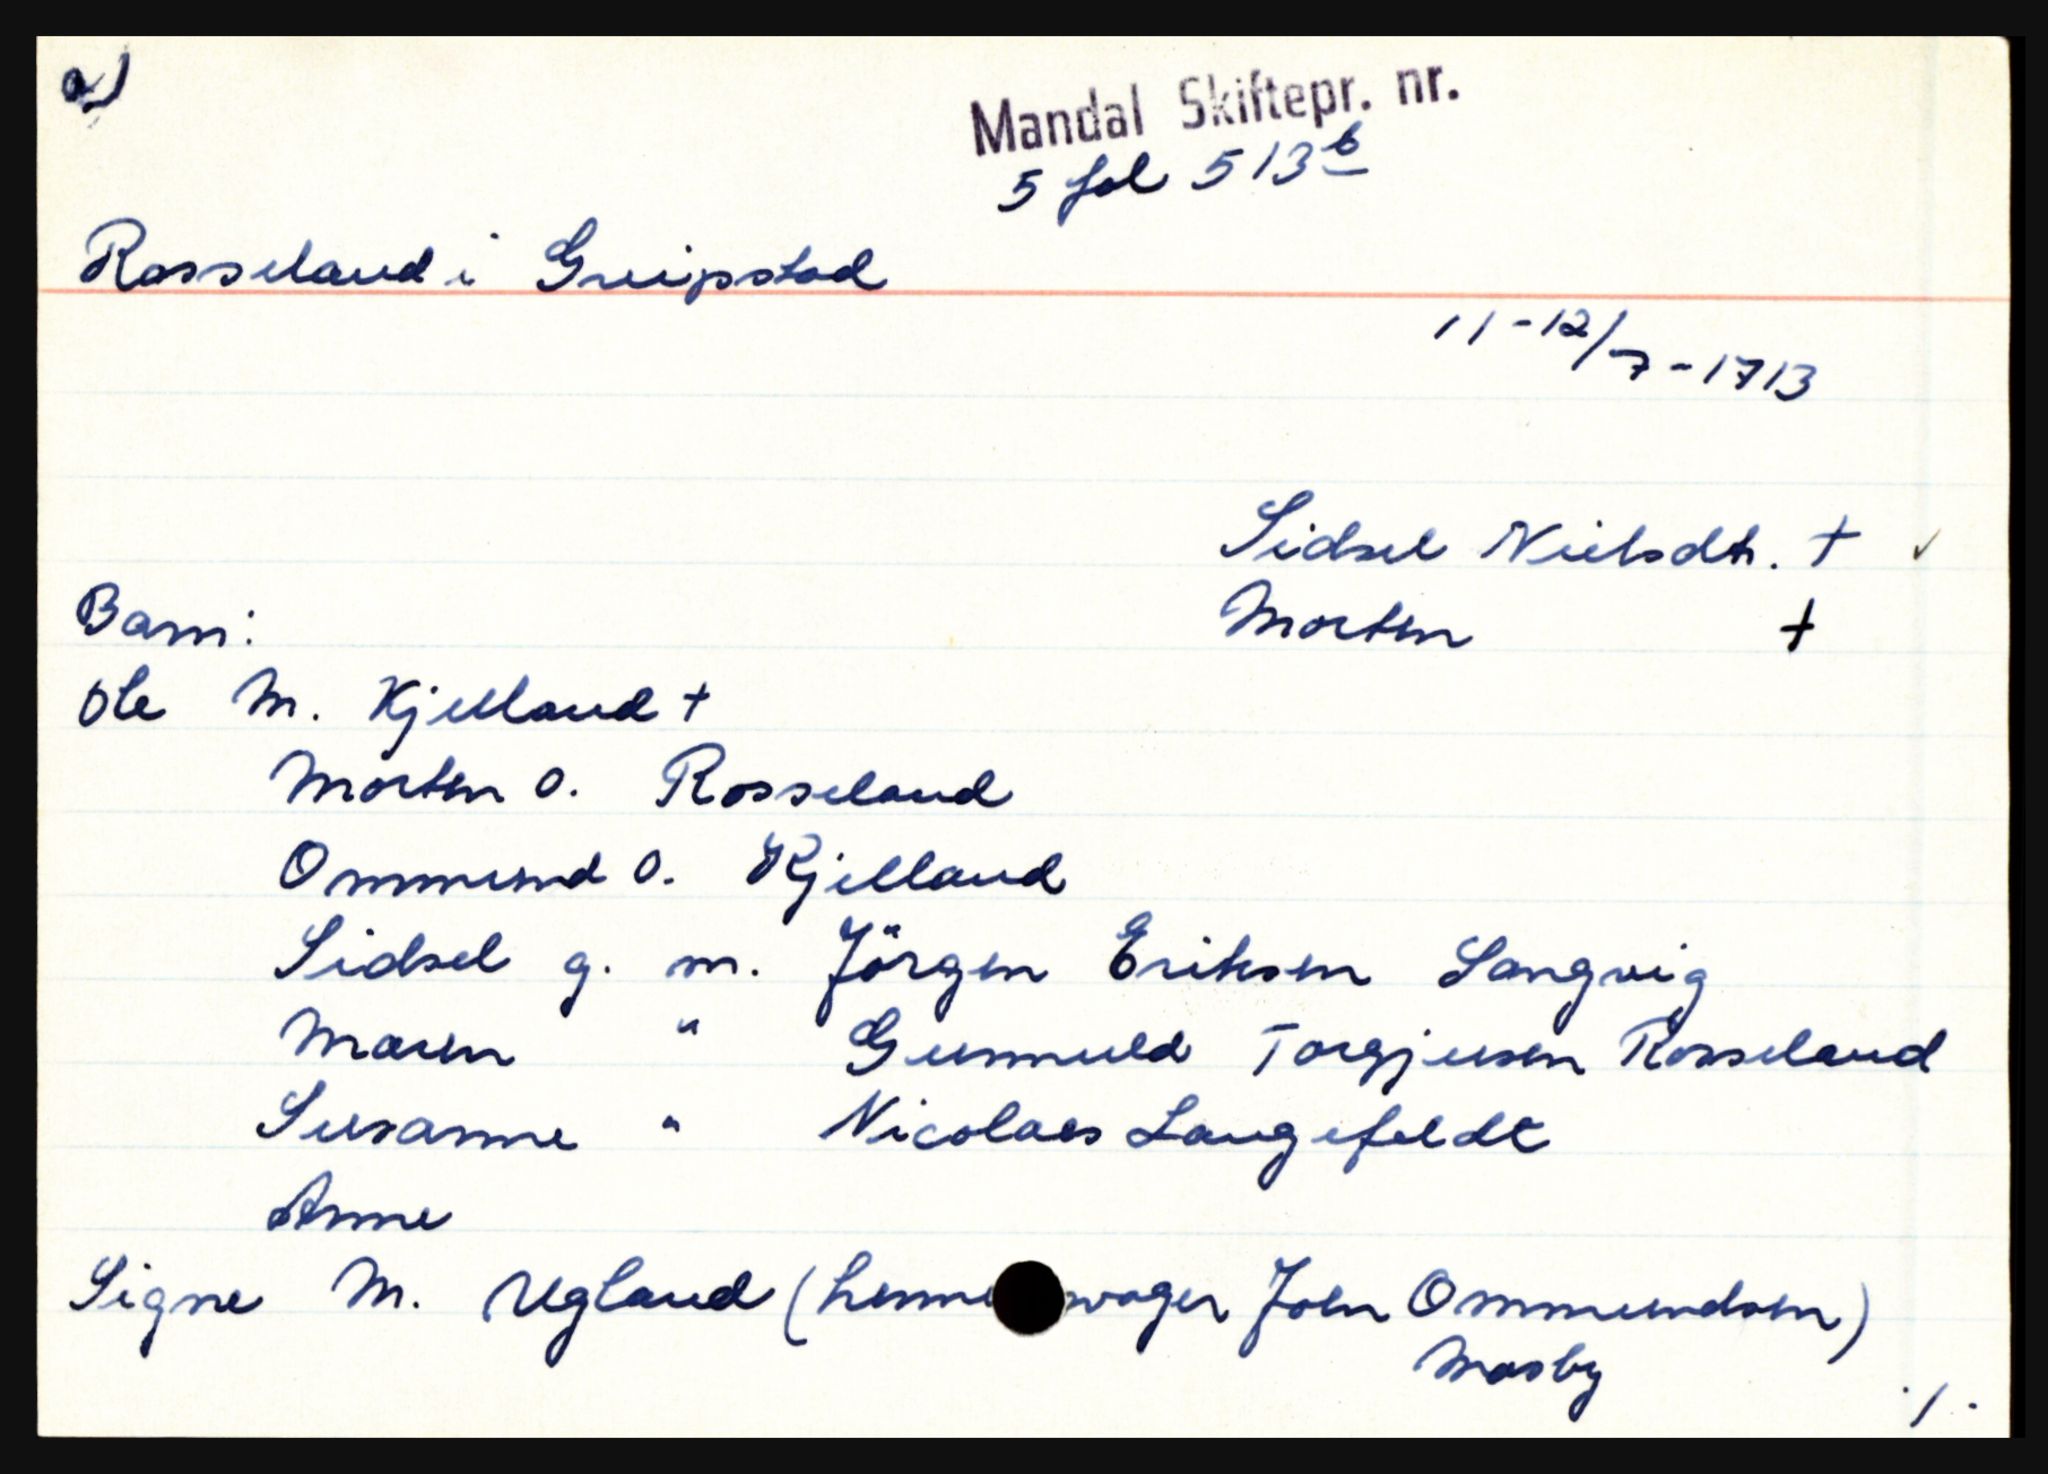 a)
Mandal Skiftepr. nr.
5 fol 513b
Rosseland i Greipstad
11-12/7-1713
Sidsel Nielsdtr. + ✓
Morten +
Barn:
Ole M. Kjelland +
Morten O. Rosseland
Ommund O. Kjelland
Sidsel g. m. Jörgen Eriksen Langvig
Maren " Gunnuld Torgjusen Rosseland
Susanne " Nicolaes Langefeldt
Anne
Signe M. Ugland ( Joen Ommundsen)
Mosby
./.